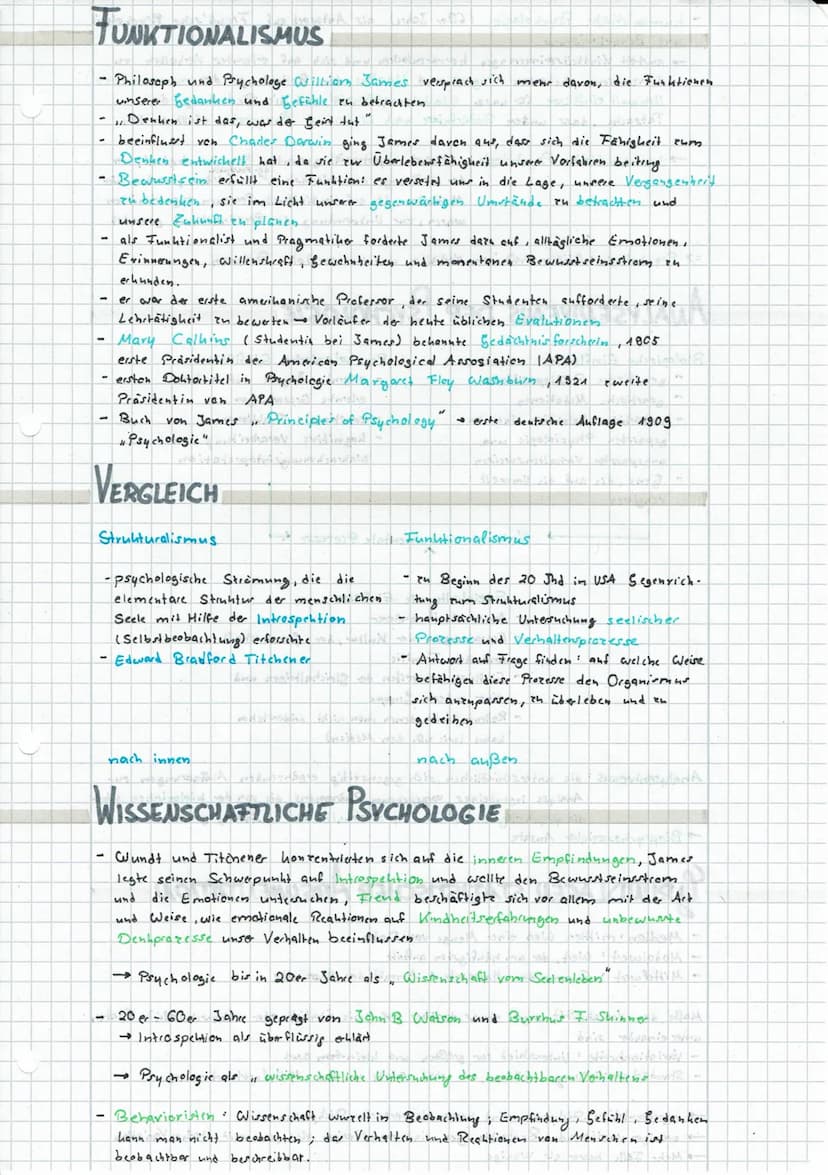 FUNKTIONALISMUS
- Philosoph und Psychologe William James versprach sich mehr davon, die Funktionen
unserer Gedanken und Gefühle zu betrachten
- „Denken ist das, was der Geist tut"
- beeinflusst von Charles Darwin ging James davon aus, dass sich die Fähigkeit zum
Denken entwickelt hat, da sie zur Überlebensfähigkeit unserer Vorfahren beitrug
- Bewusstsein erfüllt eine Funktion: es versetzt uns in die Lage, unsere Vergangenheit
zu bedenken, sie im Licht unserer gegenwärtigen Umstände zu betrachten und
unsere Zukunft zu planen
- als Funktionalist und Pragmatiker forderte James dazu auf, alltägliche Emotionen,
Erinnerungen, Willenskraft, Gewohnheiten und momentanen Bewusstseinsstrom zu
erkunden.
- er war der erste amerikanische Professor, der seine Studenten aufforderte, seine
Lehrtätigkeit zu bewerten → Vorläufer der heute üblichen Evalutionen
- Mary Calkins (Studentin bei James) bekannte Gedächtnisforscherin, 1905
erste Präsidentin der American Psychological Assosiation (APA)
- ersten Doktortitel in Psychologie Margaret Floy Washburn, 1921 zweite
Präsidentin von APA
- Buch von James „Principles of Psychology" → erste deutsche Auflage 1909
„Psychologie"
VERGLEICH
Strukturalismus
- psychologische Strömung, die die
elementare Struktur der menschlichen
Seele mit Hilfe der Introspektion
(Selbstbeobachtung) erforschte
- Edward Bradford Titchener
nach innen
Funktionalismus
- zu Beginn des 20 Jhd in USA Gegenrich-
tung zum Strukturalismus
- hauptsächliche Untersuchung seelischer
Prozesse und Verhaltensprozesse
- Antwort auf Frage finden: auf welche Weise
befähigen diese Prozesse den Organismus
sich anzupassen, zu überleben und zu
gedeihen
nach außen
WISSENSCHAFTLICHE PSYCHOLOGIE
- Wundt und Titchener konzentrierten sich auf die inneren Empfindungen, James
legte seinen Schwerpunkt auf Introspektion und wollte den Bewusstseinsstrom
und die Emotionen untersuchen, Freud beschäftigte sich vor allem mit der Art
und Weise, wie emotionale Reaktionen auf Kindheitserfahrungen und unbewusste
Denkprozesse unser Verhalten beeinflussen
→ Psychologie bis in 20er Jahre als „Wissenschaft vom Seelenleben"
- 20er - 60er Jahre geprägt von John B Watson und Burrhus F. Skinner
→ Introspektion als überflüssig erklärt
→ Psychologie als „wissenschaftliche Untersuchung des beobachtbaren Verhaltens
- Behavioristen: Wissenschaft wurzelt in Beobachtung; Empfindung, Gefühl, Gedanken
kann man nicht beobachten; das Verhalten und Reaktionen von Menschen ist
beobachtbar und beschreibbar.